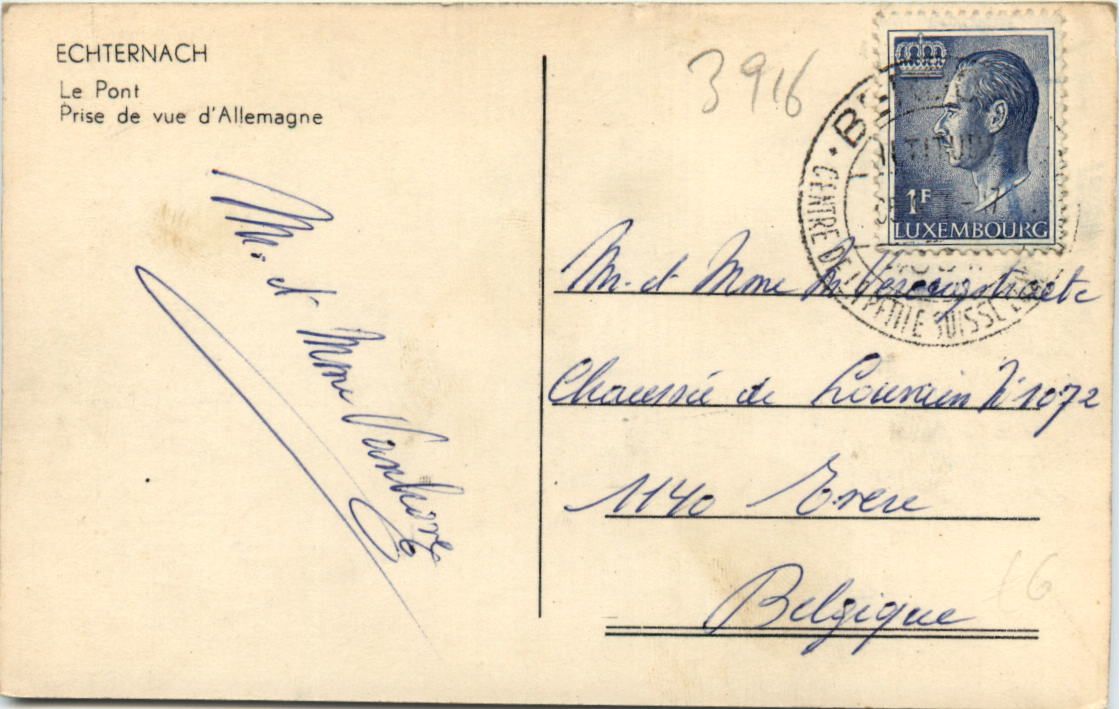 ECHTERNACH
Le Pont
Prise de vue d'Allemagne
Mr. et Mme Vanhove
3916
1F
LUXEMBOURG
CENTRE DE LA PETITE SUISSE
Mr. et Mme
Chaussée de Louvain N° 1072
1140 Evere
Belgique
£6